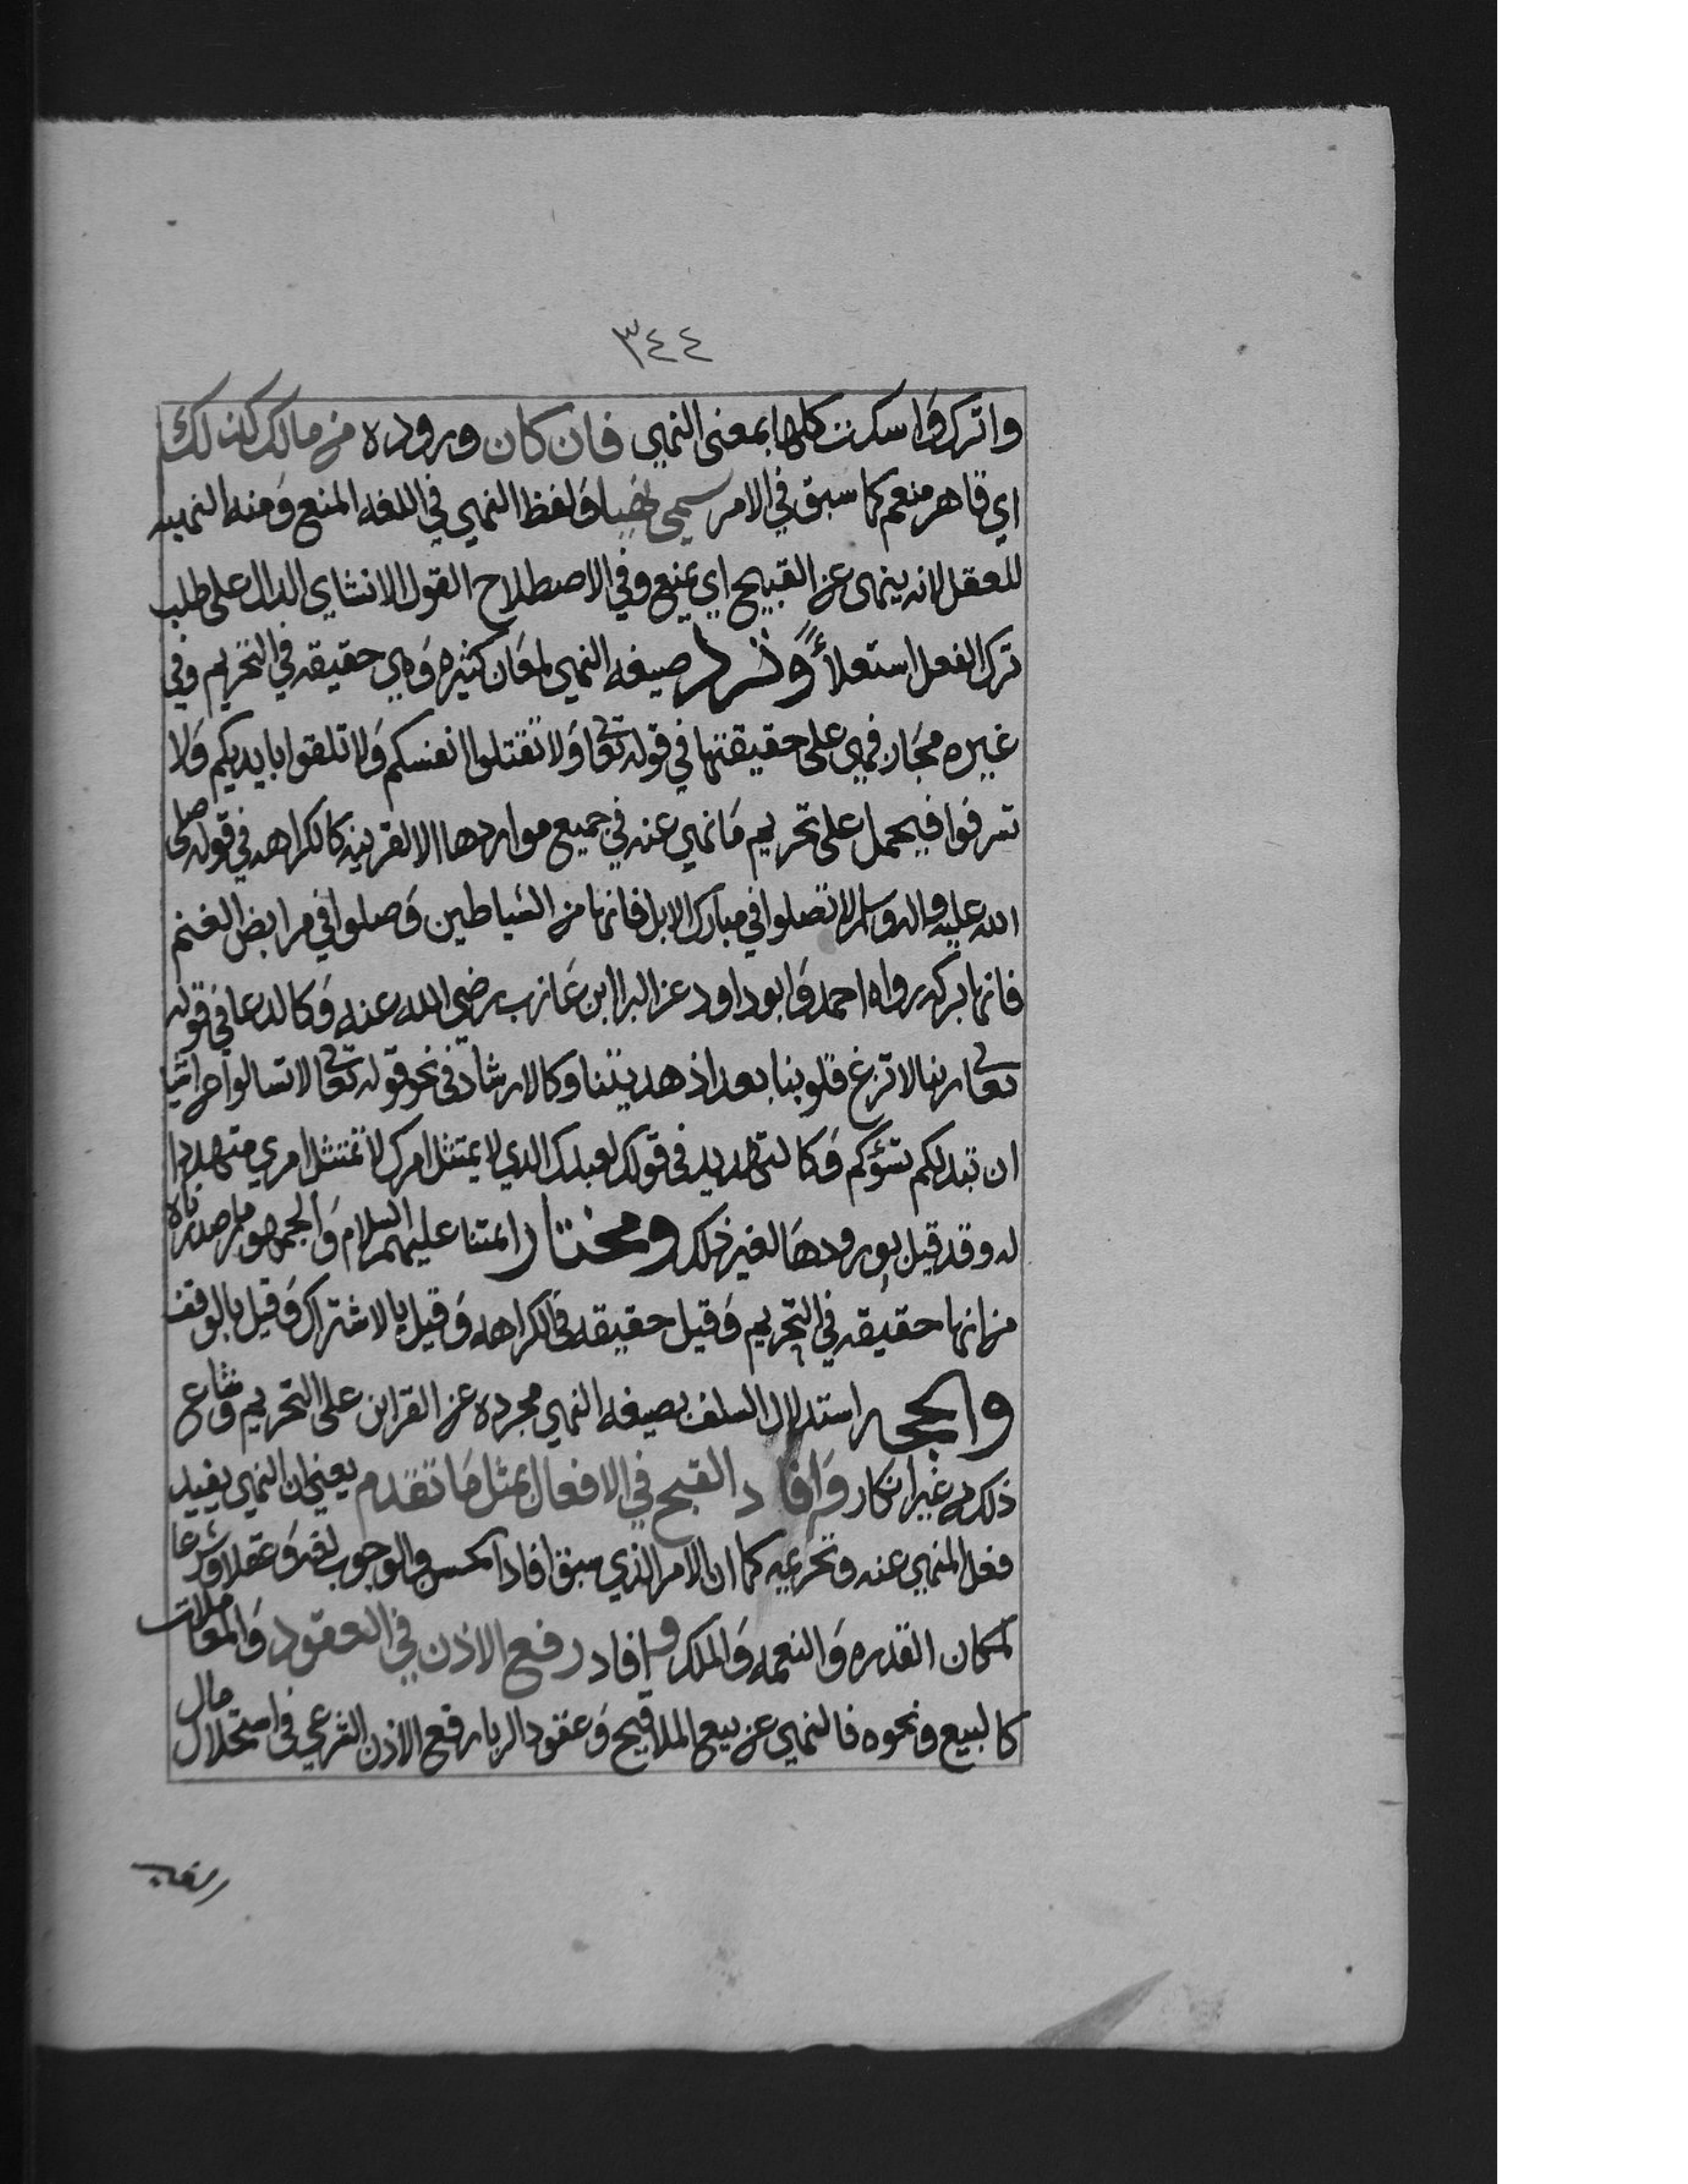 ٣٤٤
واترك واسكت كلها بمعنى النهي فان كان وروده من مالك كذلك
اي قاهر منعم كما سبق في الامر سمي نهيا ولفظ النهي في اللغه المنع ومنه النهيه
للعقل لانه ينهى عن القبيح اي يمنع وفي الاصطلاح القول الانشاي الدال على طلب
ترك الفعل استعلاءً وترد صيغه النهي لمعان كثيره وهي حقيقه في التحريم وفي
غيره مجاز فهي على حقيقتها في قوله تعا ولا تقتلوا انفسكم ولا تلقوا بايديكم ولا
تسرفوا فيحمل على تحريم ما نهي عنه في جميع مواردها الا لقرينه كالكراهه في قوله صلى
الله عليه واله وسلم لا تصلوا في مبارك الابل فانها من الشياطين وصلوا في مرابض الغنم
فانها بركه رواه احمد وابو داود عن البرا ابن عازب رضي الله عنه وكالدعا في قوله
تعا ربنا لا تزغ قلوبنا بعد اذ هديتنا وكالارشاد في نحو قوله تعا لا تسالوا عن اشيا
ان تبد لكم تسؤكم وكالتهديد في قولك لعبدك الذي لا يمتثل امرك لا تمتثل امري متهددا
له وقد قيل بورودها لغير ذلك ومختار ايمتنا عليهم السلام والجمهور ما صدرناه
من انها حقيقه في التحريم وقيل حقيقه في الكراهه وقيل بالاشتراك وقيل بالوقف
والحجه استدلال السلف بصيغه النهي مجرده عن القراين على التحريم وشاع
ذلك من غير انكار وافاد القبح في الافعال بمثل ما تقدم يعني ان النهي يفيد
فعل المنهي عنه وتحريمه كما ان الامر الذي سبق افاد الحسن والوجوب لغه وعقلا وشرعا
لمكان القدره والنعمه والملك وافاد رفع الاذن في العقود والمعاملات
كالبيع ونحوه فالنهي عن بيع الملاقيح وعقود الربا رفع الاذن الشرعي في استحلال مال